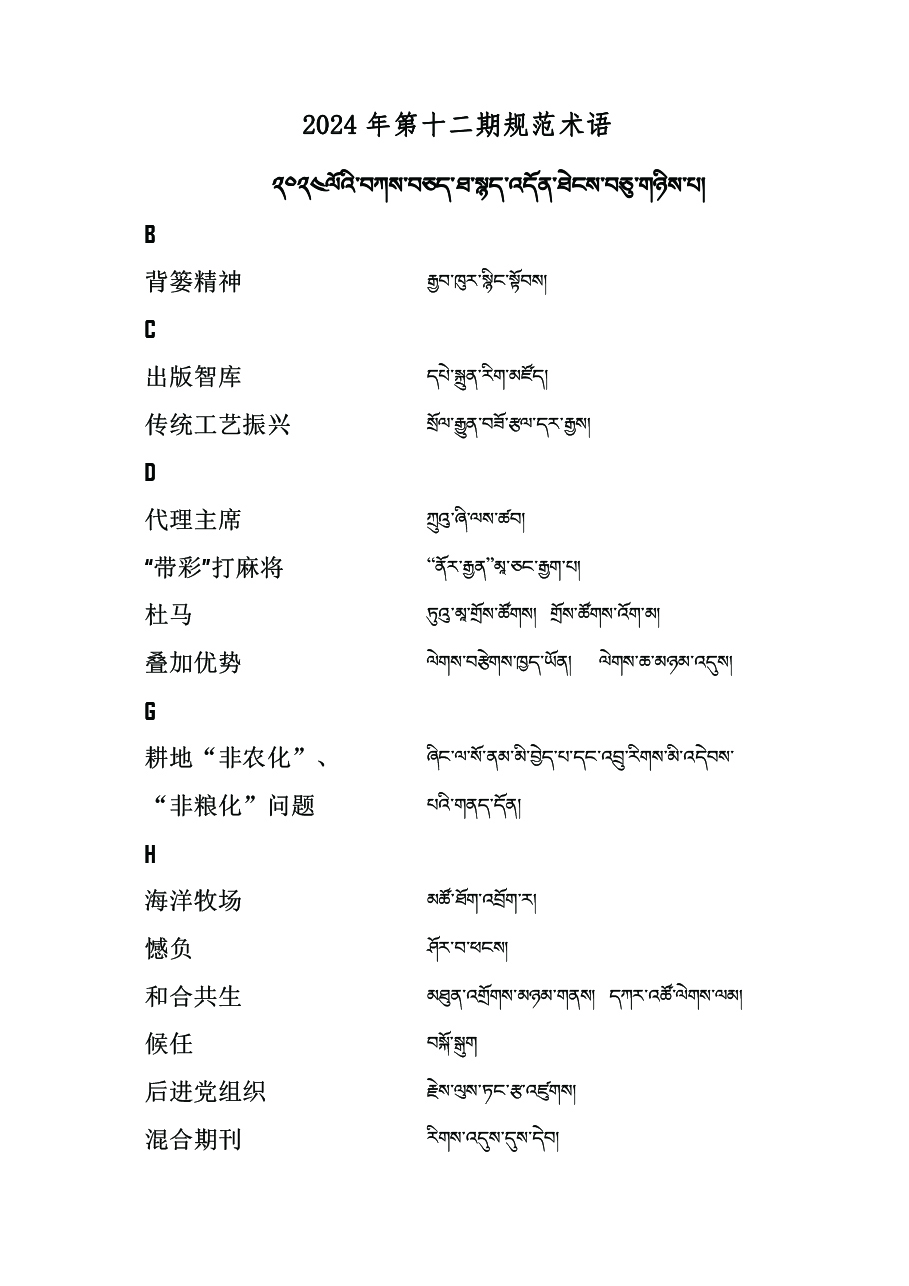 2024 年第十二期规范术语
༢༠༢༤ལོའི་བཀས་བཅད་ཐ་སྙད་འདོན་ཐེངས་བཅུ་གཉིས་པ།
B
背篓精神 རྒྱབ་ཁུར་སྙིང་སྟོབས།
C
出版智库 དཔེ་སྐྲུན་རིག་མཛོད།
传统工艺振兴 སྲོལ་རྒྱུན་བཟོ་རྩལ་དར་རྒྱས།
D
代理主席 ཀྲུའུ་ཞི་ལས་ཚབ།
“带彩”打麻将 “ནོར་རྒྱན”མཱ་ཅང་རྒྱག་པ།
杜马 ཏུའུ་མཱ་གྲོས་ཚོགས། གྲོས་ཚོགས་འོག་མ།
叠加优势 ལེགས་བརྩེགས་ཁྱད་ཡོན། ལེགས་ཆ་མཉམ་འདུས།
G
耕地“非农化”、 ཞིང་ལ་སོ་ནམ་མི་བྱེད་པ་དང་འབྲུ་རིགས་མི་འདེབས་
“非粮化”问题 པའི་གནད་དོན།
H
海洋牧场 མཚོ་ཐོག་འབྲོག་ར།
憾负 ཤོར་བ་ཕངས།
和合共生 མཐུན་འགྲོགས་མཉམ་གནས། དཀར་འཚོ་ལེགས་ལམ།
候任 བསྐོ་སྒུག
后进党组织 རྗེས་ལུས་ཏང་རྩ་འཛུགས།
混合期刊 རིགས་འདུས་དུས་དེབ།